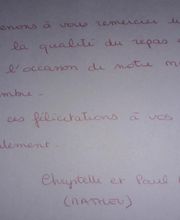 enons à vous remercier
la qualité du repas
l'occasion de notre m
mbre.
ces félicitations à vos
lement.
Chrystelle et Paul
(MATHOU)